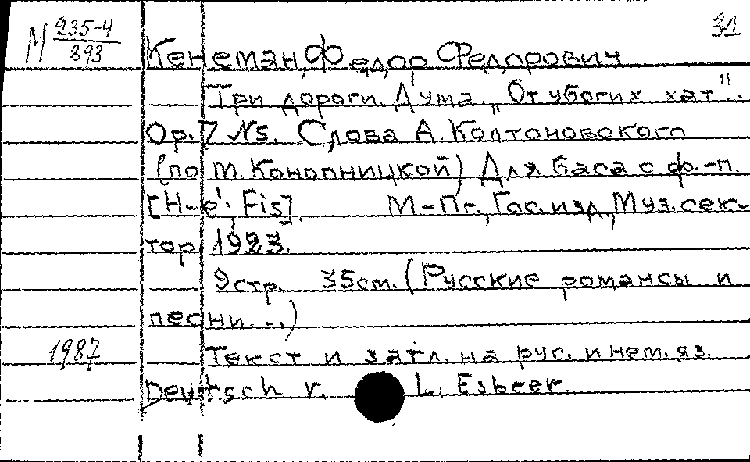 М 235-4/393
31
Кенеман, Федор Федорович
Три дороги. Дума „От убогих хат".
Op. 7 №5. Слова А. Колтоновского
(по М. Конопницкой) Для баса с ф.-п.
[H-e'; Fis]. М-Пг., Гос. изд., Муз. сек-
тор, 1923.
9 стр. 35 см. (Русские романсы и
песни...)
1987
Текст и загл. на рус. и нем. яз.
Deutsch v. L. Esbeer.